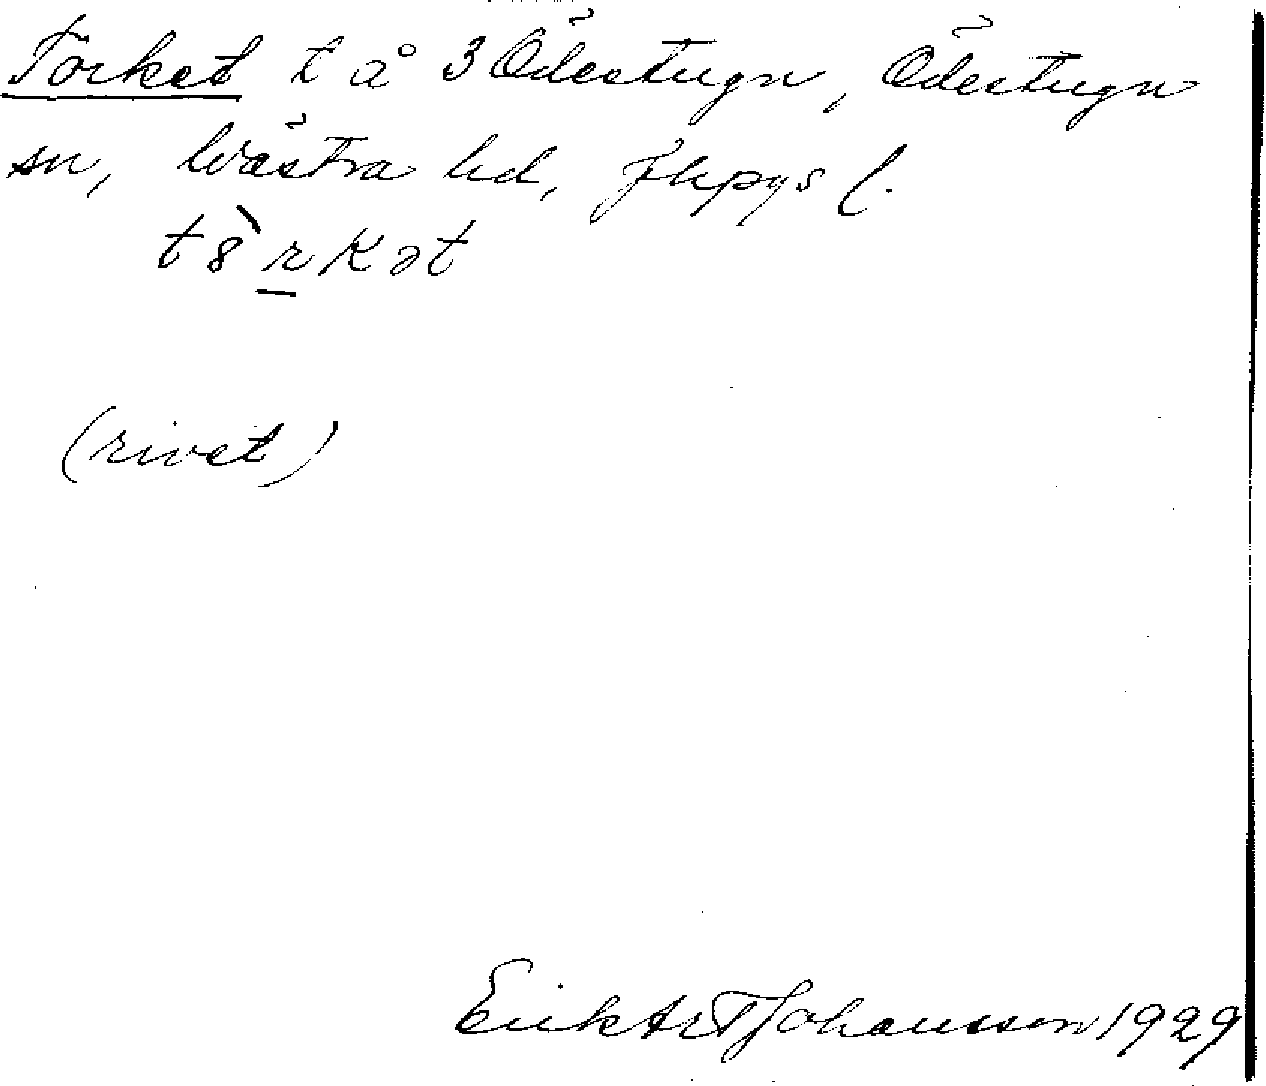 Torket t å 3 Ödestugn, Ödestugn
sn, Västra hd, Jkpgs l.
tȣ̀rkət
(rivet)
Erik Art Johansson 1929